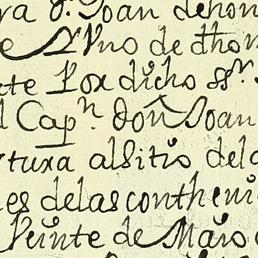 ra d.ⁿ Joan dehon
e Vno de dhon
te Por dicho sʳ.
l Capⁿ. don Joan
rtura alsitio dela
es delas conthení
Veinte de Maio